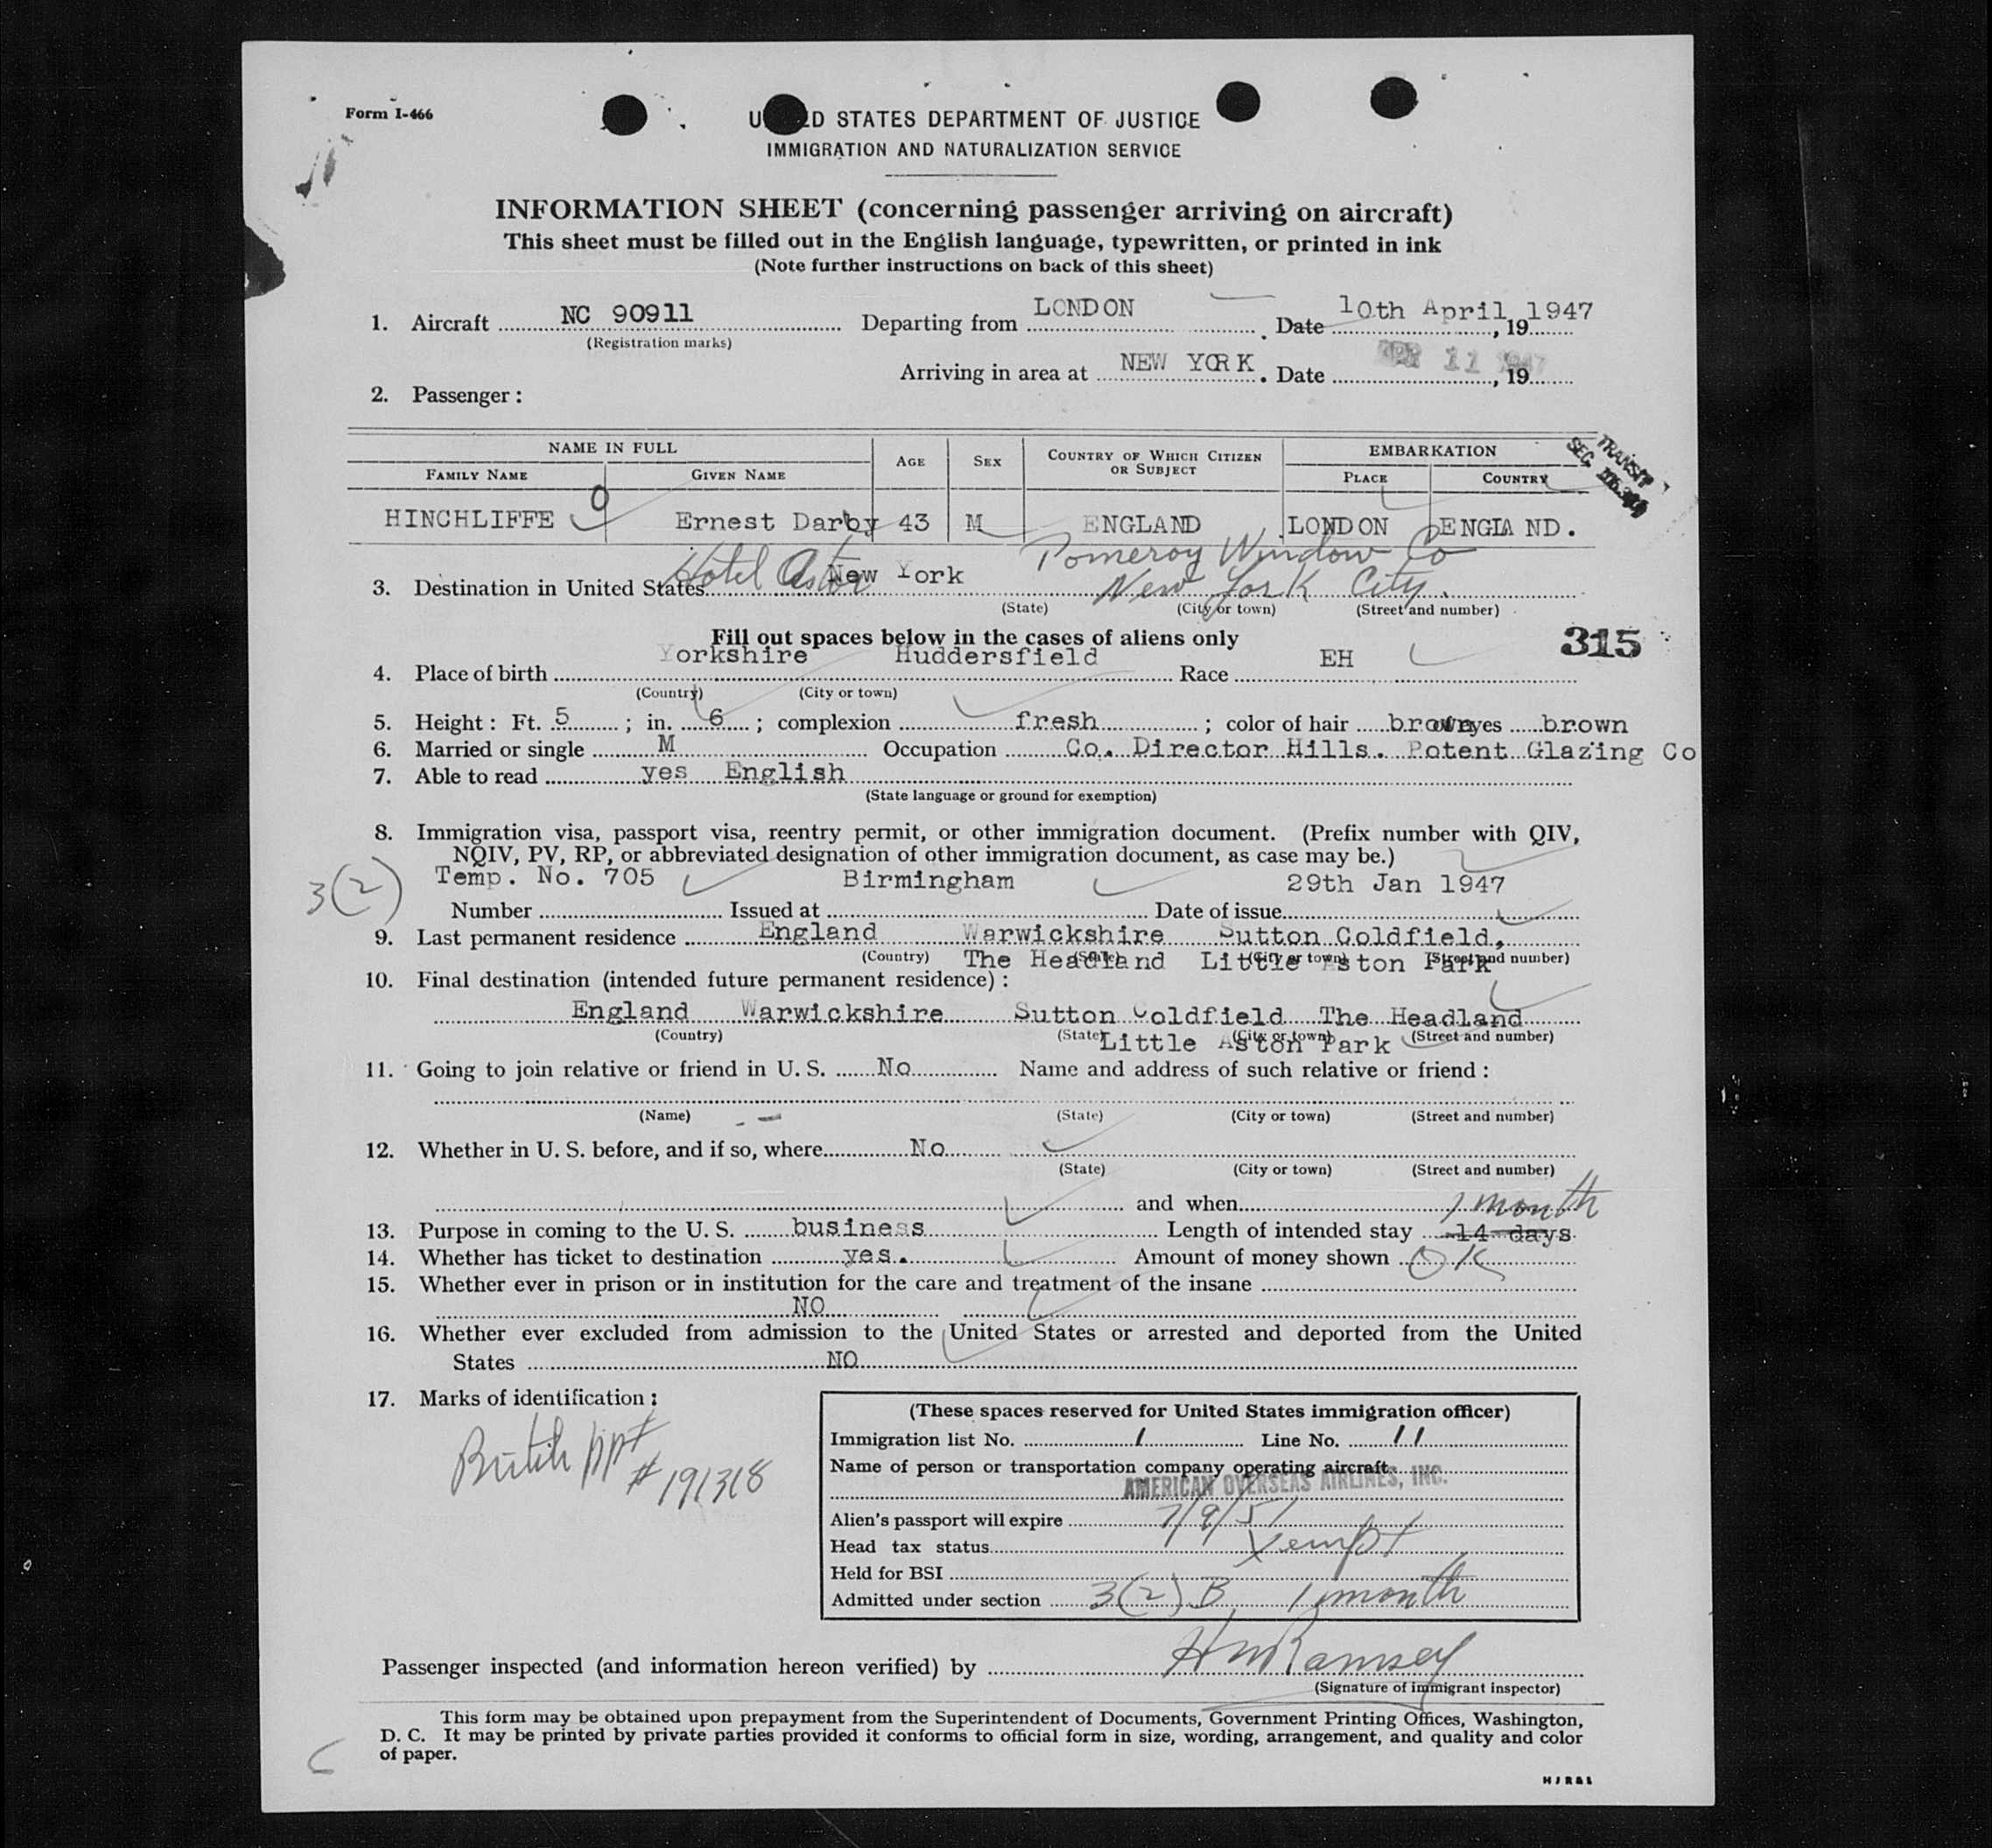 Form I-466
U D STATES DEPARTMENT OF JUSTICE
IMMIGRATION AND NATURALIZATION SERVICE
INFORMATION SHEET (concerning passenger arriving on aircraft)
This sheet must be filled out in the English language, typewritten, or printed in ink
(Note further instructions on back of this sheet)
1. Aircraft NC 90911 Departing from LONDON Date 10th April, 19 1947
(Registration marks)
Arriving in area at NEW YORK. Date APR 11 1947, 19
2. Passenger:
NAME IN FULL AGE SEX COUNTRY OF WHICH CITIZEN OR SUBJECT EMBARKATION
FAMILY NAME GIVEN NAME PLACE COUNTRY
TRANSIT
SEC.
HINCHLIFFE 0 Ernest Darby 43 M ENGLAND LONDON ENGLAND.
Pomeroy Window Co
3. Destination in United States Hotel Astor New York New York City.
(State) (City or town) (Street and number)
Fill out spaces below in the cases of aliens only
315
4. Place of birth Yorkshire Huddersfield Race EH
(Country) (City or town)
5. Height: Ft. 5; in. 6; complexion fresh; color of hair brown eyes brown
6. Married or single M Occupation Co. Director Hills. Potent Glazing Co
7. Able to read yes English
(State language or ground for exemption)
8. Immigration visa, passport visa, reentry permit, or other immigration document. (Prefix number with QIV,
NQIV, PV, RP, or abbreviated designation of other immigration document, as case may be.)
3(2)
Temp. No. 705 Birmingham 29th Jan 1947
Number Issued at Date of issue
9. Last permanent residence England Warwickshire Sutton Coldfield,
(Country) (State) (City or town) (Street and number)
The Headland Little Aston Park
10. Final destination (intended future permanent residence):
England Warwickshire Sutton Coldfield The Headland
(Country) (State) (City or town) (Street and number)
Little Aston Park
11. Going to join relative or friend in U. S. No Name and address of such relative or friend:
(Name) (State) (City or town) (Street and number)
12. Whether in U. S. before, and if so, where No
(State) (City or town) (Street and number)
and when
1 month
13. Purpose in coming to the U. S. business Length of intended stay 14 days
14. Whether has ticket to destination yes. Amount of money shown OK
15. Whether ever in prison or in institution for the care and treatment of the insane
NO
16. Whether ever excluded from admission to the United States or arrested and deported from the United
States NO
17. Marks of identification:
British ppt
# 191318
(These spaces reserved for United States immigration officer)
Immigration list No. 1 Line No. 11
Name of person or transportation company operating aircraft
AMERICAN OVERSEAS AIRLINES, INC.
Alien's passport will expire 7/9/51
Head tax status Xempt
Held for BSI
Admitted under section 3(2) B 1 month
Passenger inspected (and information hereon verified) by HM Ramsey
(Signature of immigrant inspector)
This form may be obtained upon prepayment from the Superintendent of Documents, Government Printing Offices, Washington,
D. C. It may be printed by private parties provided it conforms to official form in size, wording, arrangement, and quality and color
of paper.